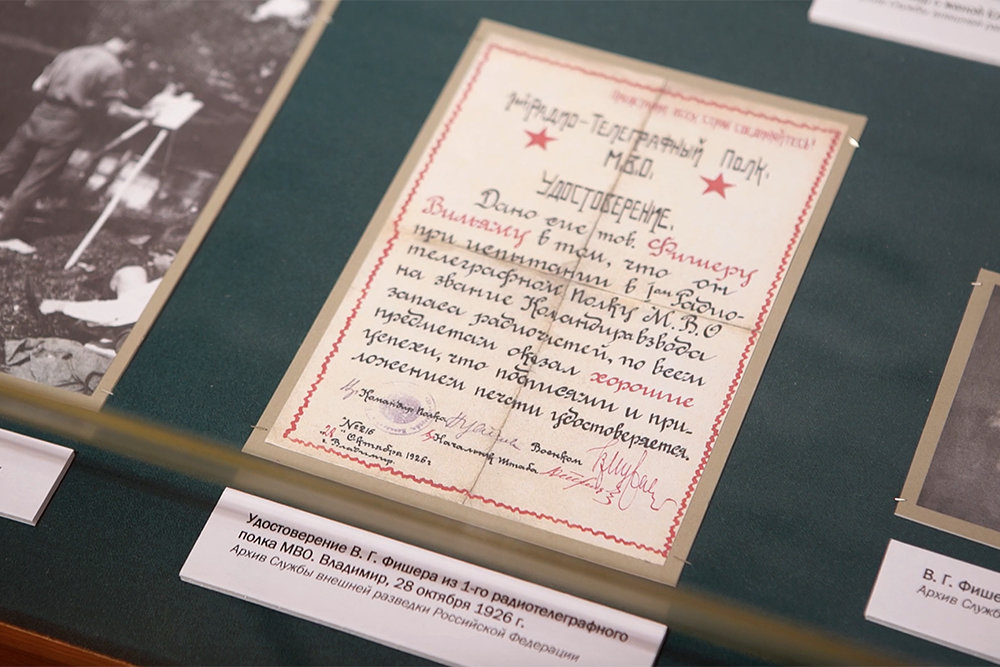 Пролетарии всех стран соединяйтесь!
1ый Радио-Телеграфный Полк.
М.В.О.
Удостоверение.
Дано сие тов. Фишеру
Вильяму в том, что он
при испытании в 1ом Радио-
телеграфном Полку М.В.О
на звание Командира взвода
запаса радиочастей, по всем
предметам оказал хорошие
успехи, что подписями и при-
ложением печати удостоверяется.
Командир полка
Военком
№ 216
Начальник Штаба
"28" Октября 1926 г
г. Владимир.
Удостоверение В. Г. Фишера из 1-го радиотелеграфного
полка МВО. Владимир, 28 октября 1926 г.
Архив Службы внешней разведки Российской Федерации
В. Г. Фише
Архив Служб